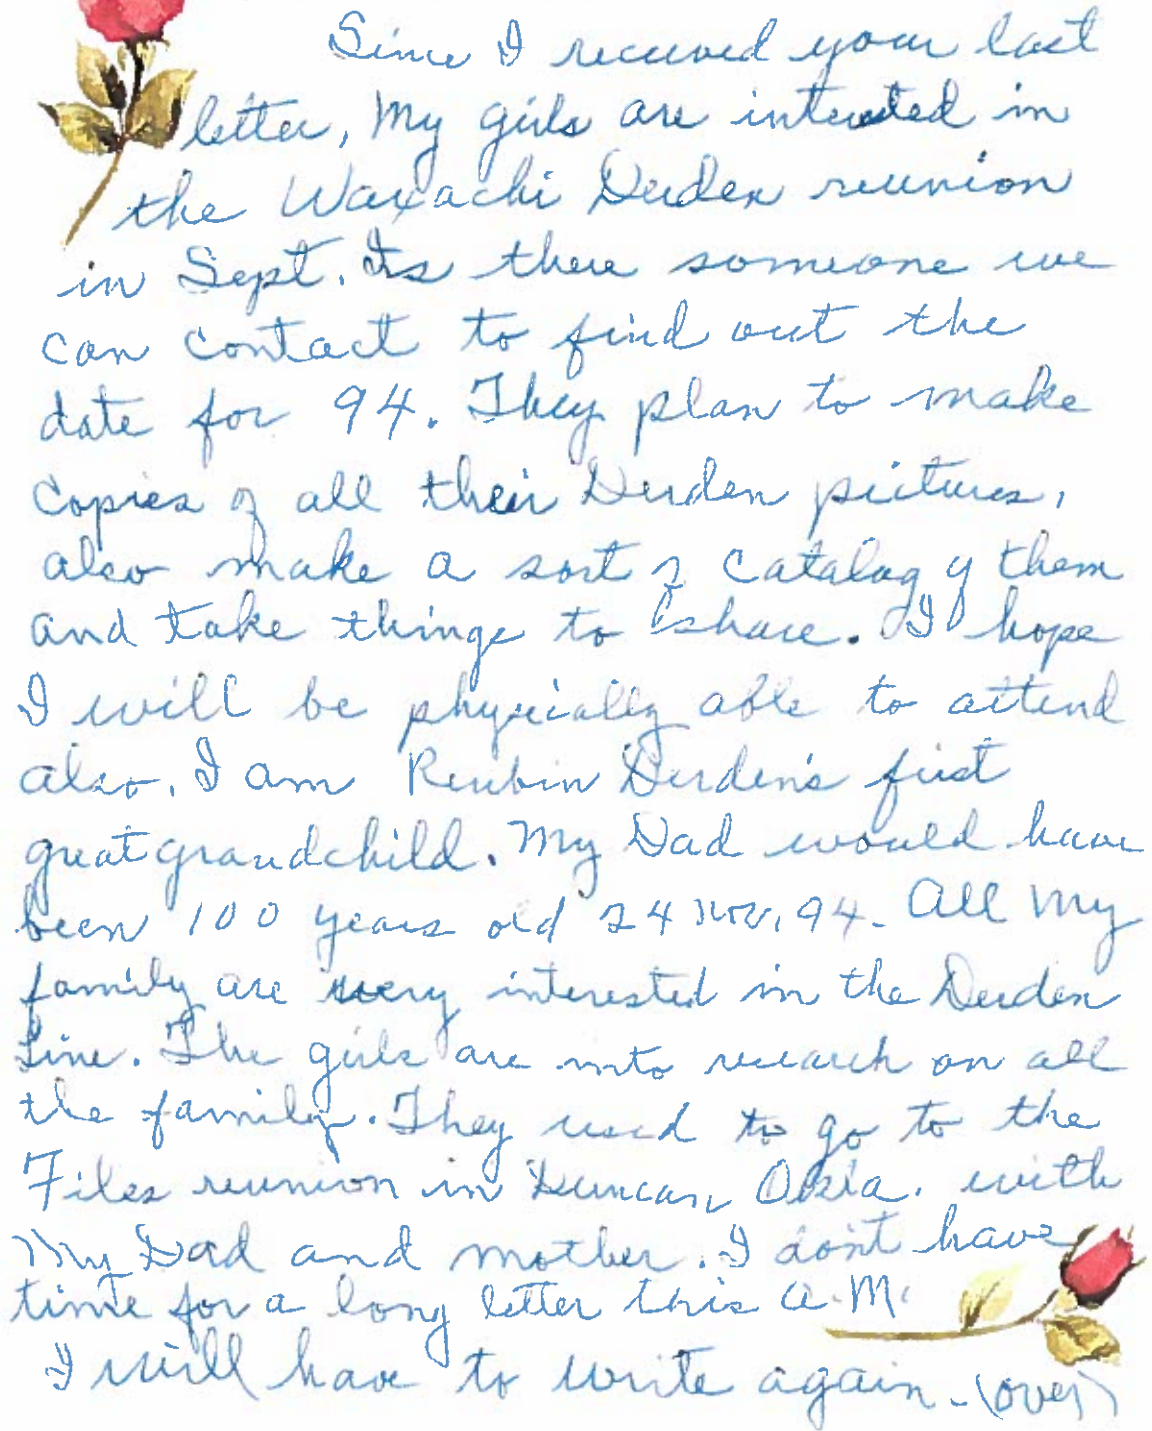 Since I received your last
letter, My girls are interested in
the Waxachi Derden reunion
in Sept. Is there someone we
can contact to find out the
date for 94. They plan to make
copies of all their Derden pictures,
also make a sort of catalog of them
and take things to share. I hope
I will be physically able to attend
also. I am Reubin Derden's first
great grandchild. My Dad would have
been 100 years old 24 Nov. 94. All my
family are very interested in the Derden
Line. The girls are into research on all
the family. They used to go to the
Files reunion in Duncan, Okla. with
My Dad and mother. I don't have
time for a long letter this A.M.
I will have to write again. (over)